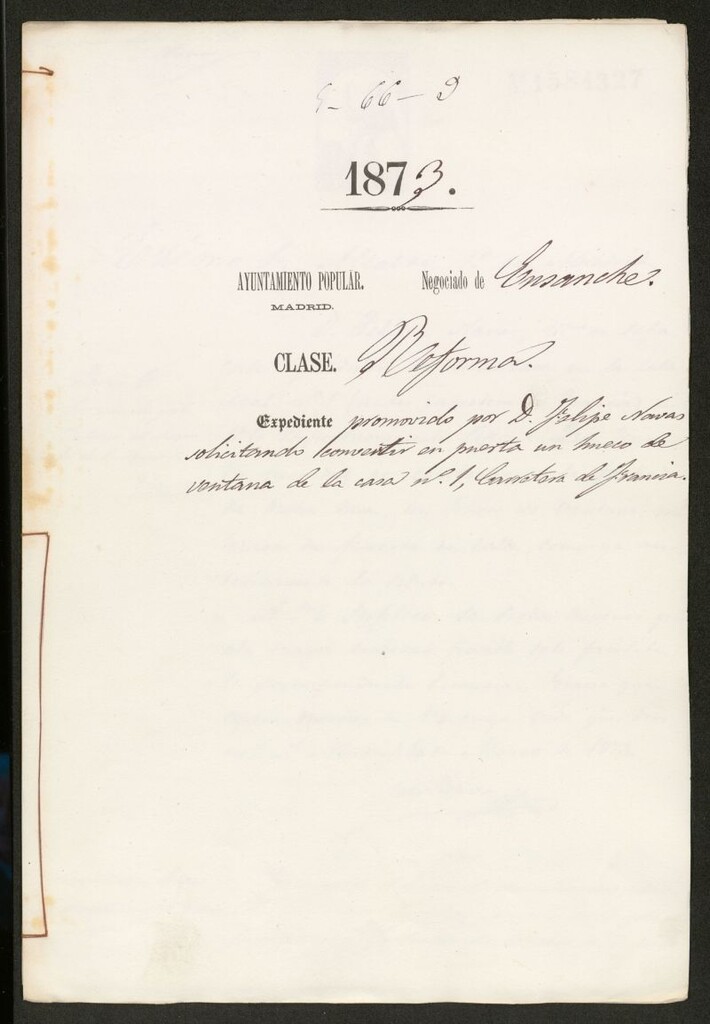 66-9
1873.
AYUNTAMIENTO POPULAR. Negociado de Ensanche.
MADRID.
CLASE. Reforma.
Expediente promovido por D. Felipe Navas
solicitando convertir en puerta un hueco de
ventana de la casa nº. 1, Carretera de Francia.